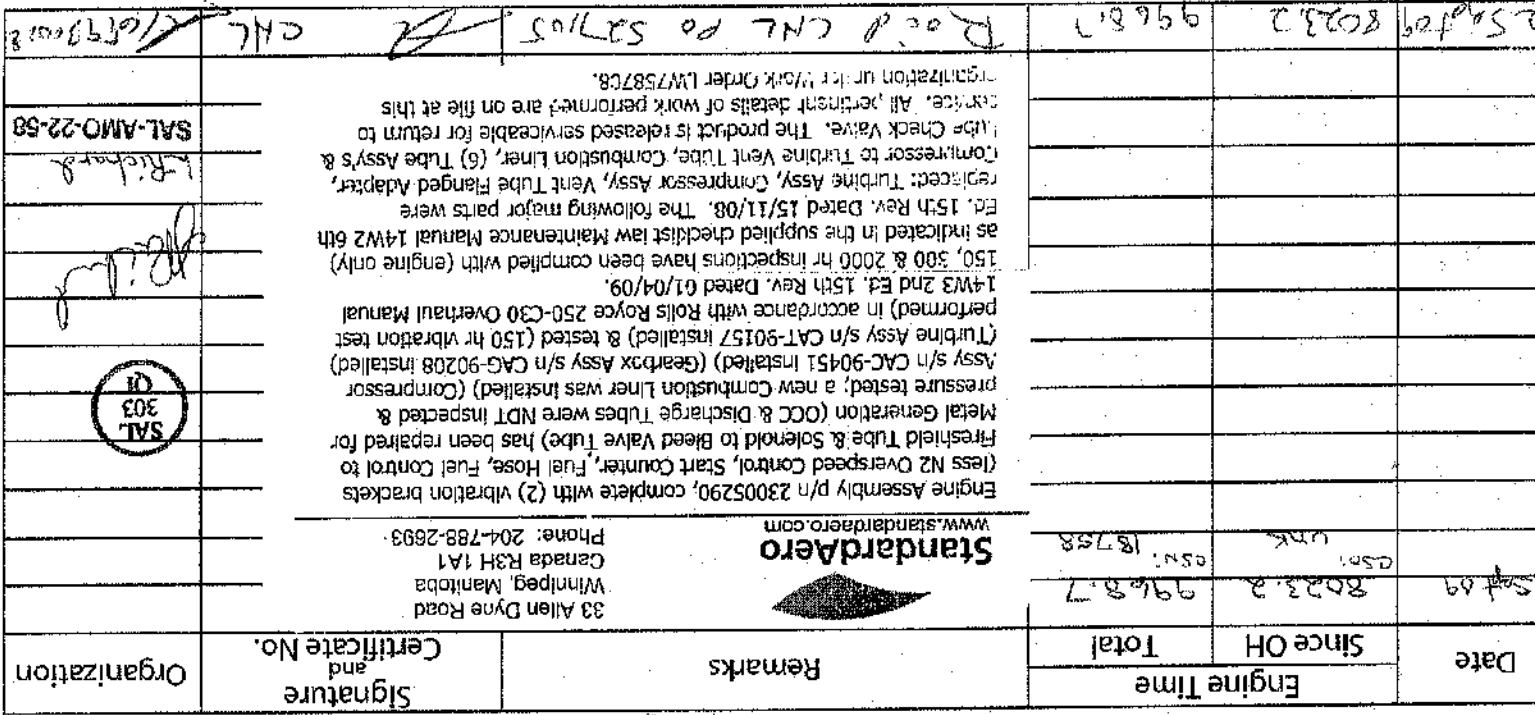 Date
Engine Time
Since OH
Total
Remarks
Signature
and
Certificate No.
Organization
Sept 09
8023.2
9968.7
CSO:
UNK
CSN:
18758
StandardAero
www.standardaero.com
33 Allen Dyne Road
Winnipeg, Manitoba
Canada R3H 1A1
Phone: 204-788-2693
Engine Assembly p/n 23005290, complete with (2) vibration brackets
(less N2 Overspeed Control, Start Counter, Fuel Hose, Fuel Control to
Fireshield Tube & Solenoid to Bleed Valve Tube) has been repaired for
Metal Generation (OCC & Discharge Tubes were NDT inspected &
pressure tested; a new Combustion Liner was installed) (Compressor
Assy s/n CAC-90451 installed) (Gearbox Assy s/n CAG-90208 installed)
(Turbine Assy s/n CAT-90157 installed) & tested (150 hr vibration test
performed) in accordance with Rolls Royce 250-C30 Overhaul Manual
14W3 2nd Ed. 15th Rev. Dated 01/04/09.
150, 300 & 2000 hr inspections have been complied with (engine only)
as indicated in the supplied checklist iaw Maintenance Manual 14W2 6th
Ed. 15th Rev. Dated 15/11/08. The following major parts were
replaced: Turbine Assy, Compressor Assy, Vent Tube Flanged Adapter,
Compressor to Turbine Vent Tube, Combustion Liner, (6) Tube Assy's &
Lube Check Valve. The product is released serviceable for return to
service. All pertinent details of work performed are on file at this
organization under Work Order LW758708.
SAL
303
QI
L Richard
SAL-AMO-22-58
Sept 09
8023.2
9968.7
Rec'd CNL PO 527105
CNL